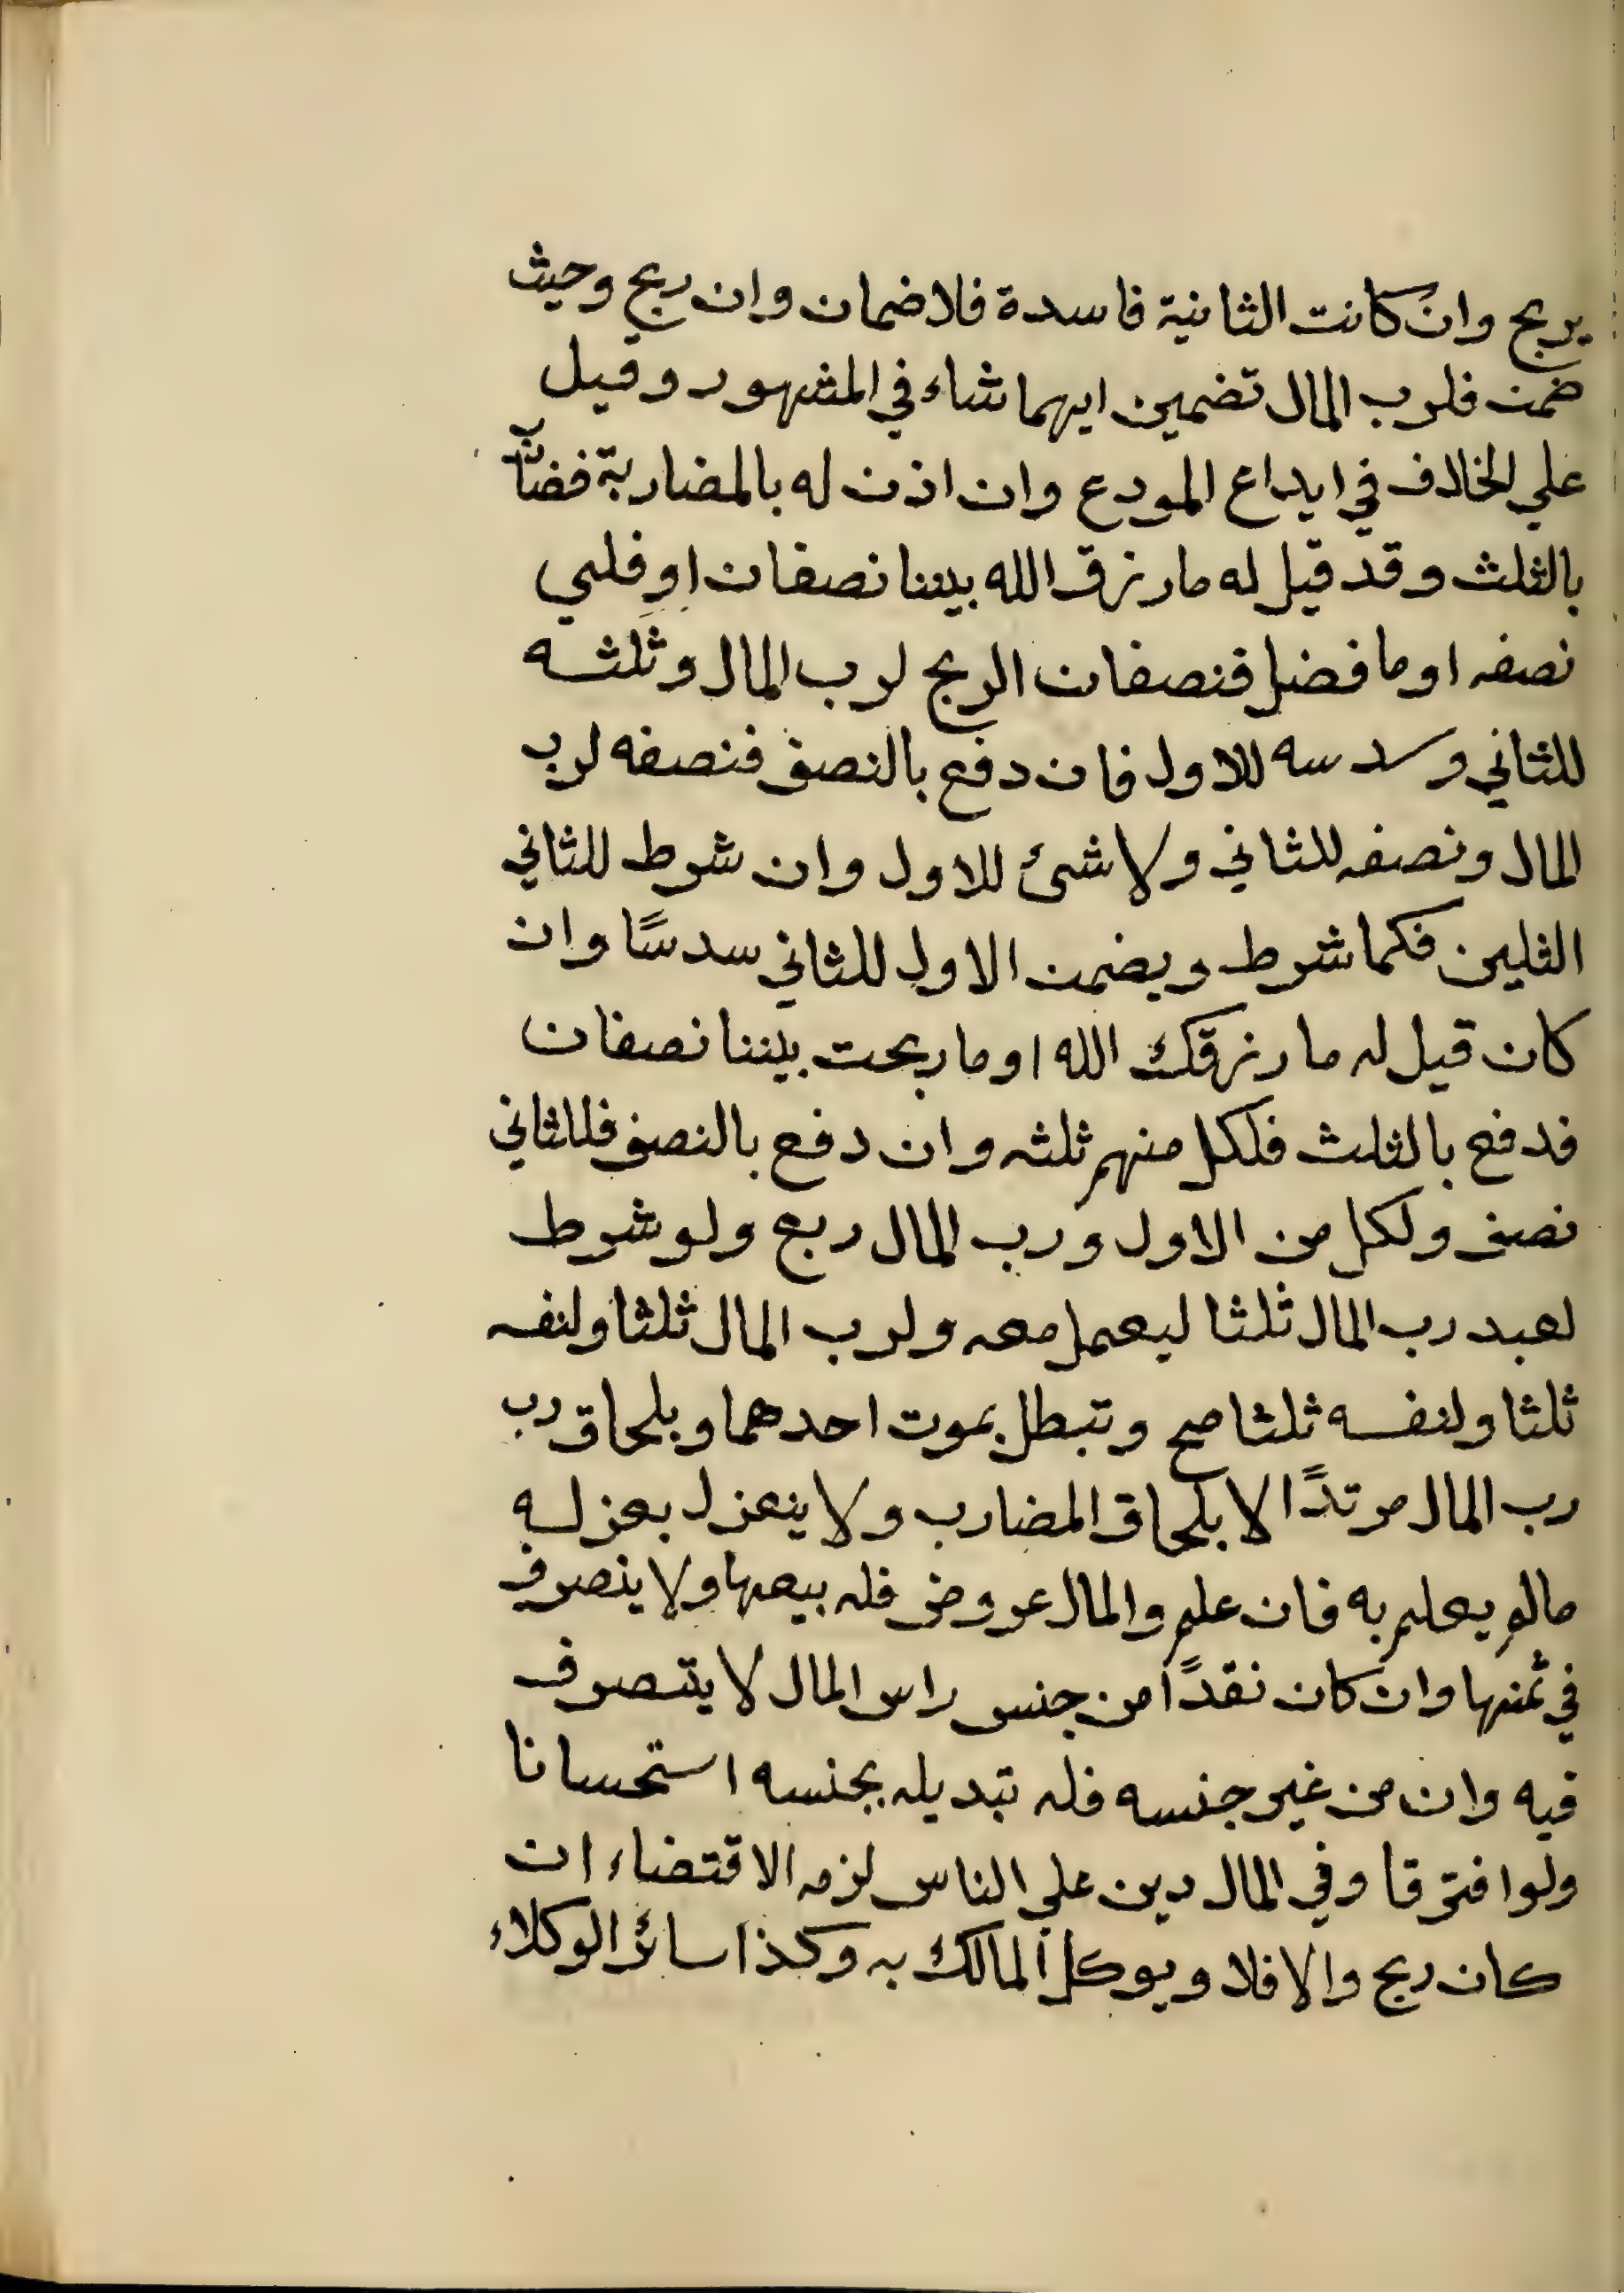 يربح وان كانت الثانية فاسدة فلا ضمان وان ربح وحيث
ضمن فلرب المال تضمين ايهما شاء في المشهور وقيل
علي الخلاف في ايداع المودع وان اذن له بالمضاربة فضآ
بالثلث وقد قيل له ما رزق الله بيننا نصفان او فلي
نصفه او ما فضل فنصفان الربح لرب المال وثلثه
للثاني وسدسه للاول فان دفع بالنصف فنصفه لرب
المال ونصفه للثاني ولا شئ للاول وان شرط للثاني
الثلين فكما شرط ويضمن الاول للثاني سدسًا وان
كان قيل له ما رزقك الله او ما ربحت بيننا نصفان
فدفع بالثلث فلكل منهم ثلثه وان دفع بالنصف فللثاني
نصف ولكل من الاول ورب المال ربع ولو شرط
لعبد رب المال ثلثا ليعمل معه ولرب المال ثلثا ولنفسه
ثلثا ولنفسه ثلثا صح وتبطل بموت احدهما وبلحاق رب
رب المال مرتدًا لا بلحاق المضارب ولا ينعزل بعزله
مالم يعلم به فان علم والمال عروض فله بيعها ولا ينصرف
في ثمنها وان كان نقدًا من جنس راس المال لا يتصرف
فيه وان من غير جنسه فله تبديله بجنسه استحسانا
ولو افترقا وفي المال دين علي الناس لزمه الاقتضاء ان
كان ربح والا فلا ويوكل المالك به وكذا سائر الوكلاء